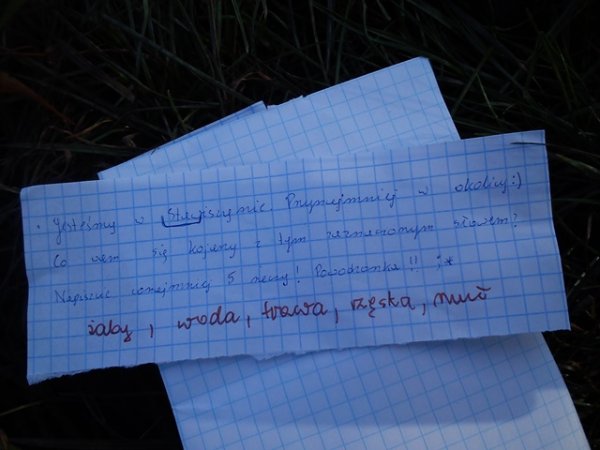 • Jesteśmy w Stawiszynie. Przynajmniej w okolicy :)
Co wam się kojarzy z tym zaznaczonym słowem?
Napiszcie conajmniej 5 rzeczy! Powodzonka!! ;*
żaby, woda, trawa, rzęska, muł